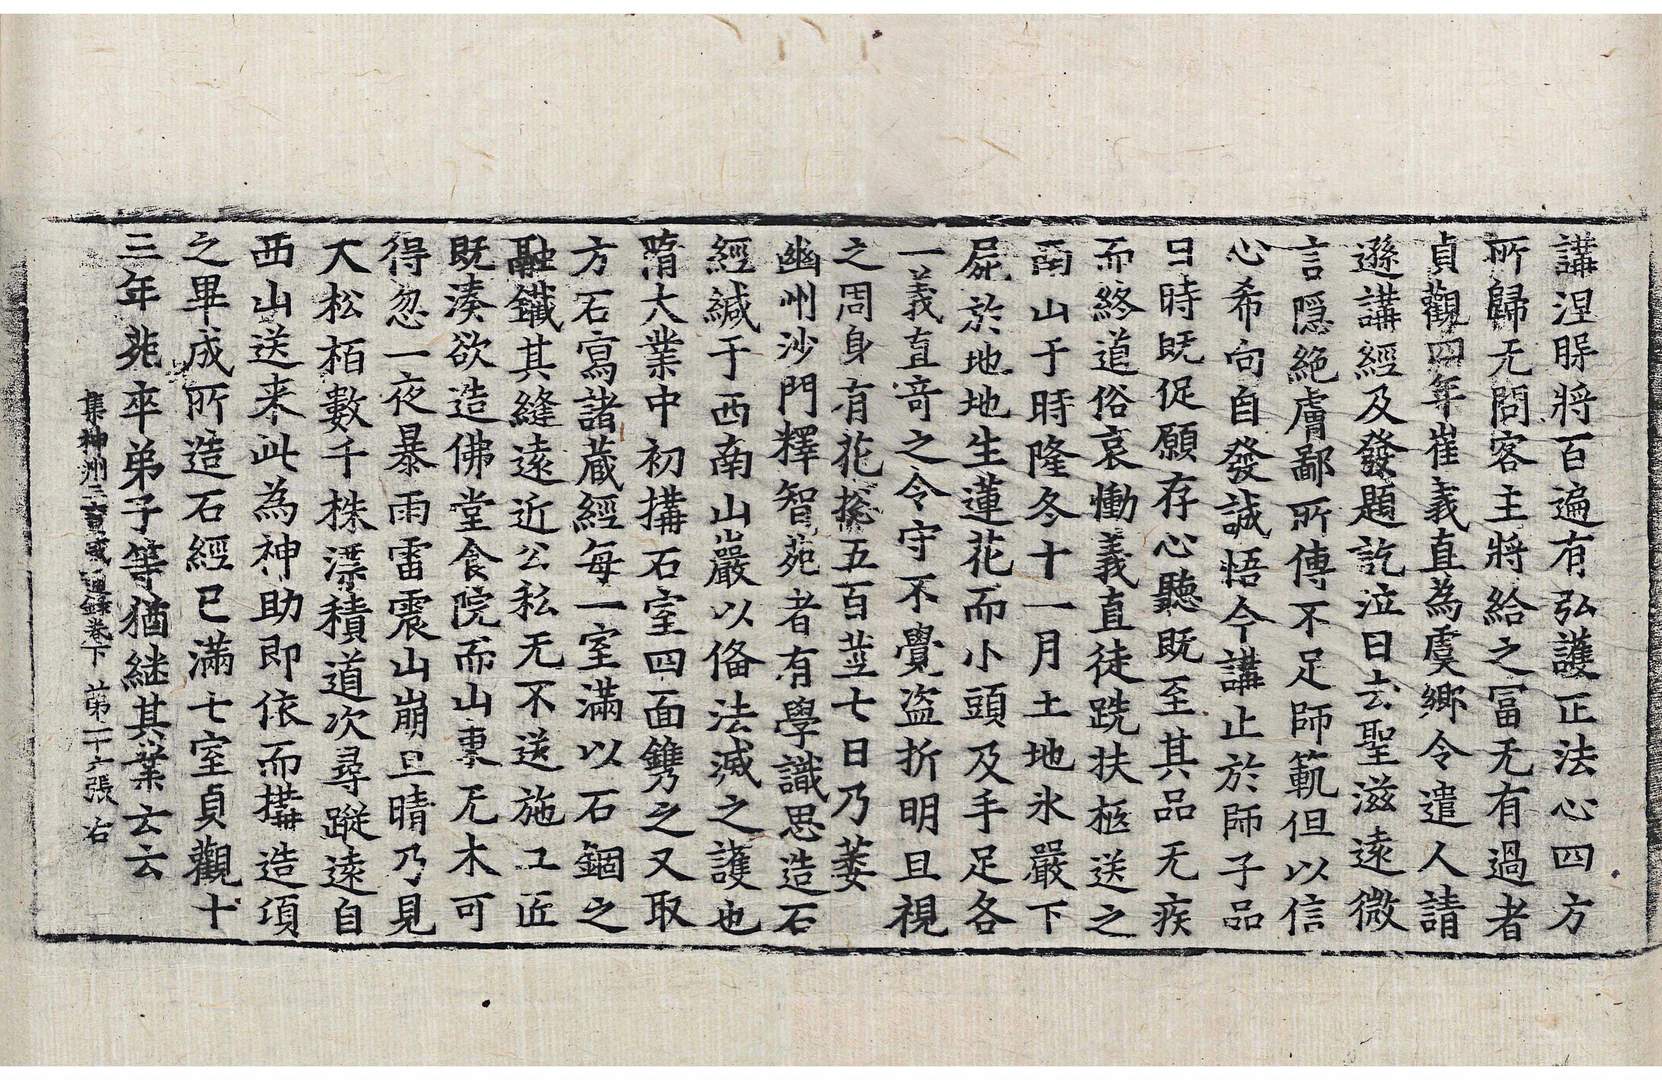 講涅䏶將百遍有弘護正法心四方
所歸无問客主將給之冨无有過者
貞觀四年崔義直為虞鄉令遣人請
遜講經及發題訖泣曰去聖滋遠微
言隱絶膚鄙所傳不足師範但以信
心希向自發誠悟今講止於師子品
日時既促願存心聽既至其品无疾
而終道俗哀慟義直徒跣扶柩送之
南山于時隆冬十一月土地氷嚴下
屍於地地生蓮花而小頭及手足各
一義直奇之令守不覺盗折明旦視
之周身有花捴五百莖七日乃萎
幽州沙門釋智苑者有學識思造石
經緘于西南山巖以俻法滅之護也
隋大業中初搆石室四面鐫之又取
方石寫諸藏經每一室滿以石錮之
融鐵其縫遠近公私无不送施工匠
既湊欲造佛堂食院而山東无木可
得忽一夜暴雨雷震山崩旦晴乃見
大松栢數千株漂積道次尋蹤遠自
西山送来此為神助即依而搆造須
之畢成所造石經已滿七室貞觀十
三年苑卒弟子等猶継其業云云
集神州三寳感通錄卷下 第二十六張 右